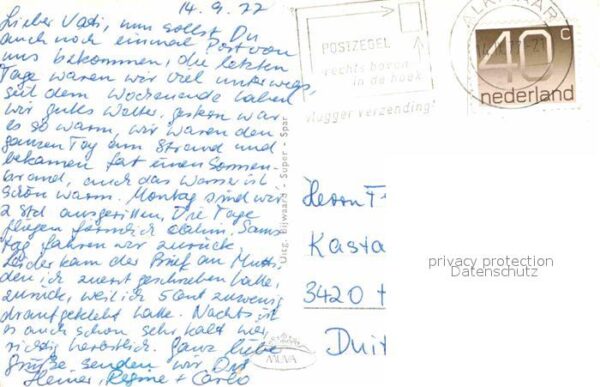 14.9.77
Lieber Vati, nun sollst Du
auch noch einmal Post von
uns bekommen, die letzten
Tage waren wir viel unterwegs,
seit dem Wochenende haben
wir gutes Wetter, gestern war
es so warm, wir waren den
ganzen Tag am Strand und
bekamen fast einen Sonnen-
brand, auch das Wasser ist
schön warm. Montag sind wir
2 Std ausgeritten. Die Tage
fliegen förmlich dahin. Sams
tag fahren wir zurück.
Leider kam der Brief an Mutti,
den ich zuerst geschrieben hatte,
zurück, weil ich 5 cent zuwenig
draufgeklebt hatte. Nachts ist
es auch schon sehr kalt hier,
richtig herbstlich. Ganz liebe
Grüße senden wir Dir
Heiner, Regine + Carlo
Uitg. Bijwaard - Super - Spar
MUVA
POSTZEGEL
rechts boven
in de hoek
vlugger verzending!
ALKMAAR
40 c
nederland
Herrn F
Kasta
3420
Duit
privacy protection
Datenschutz